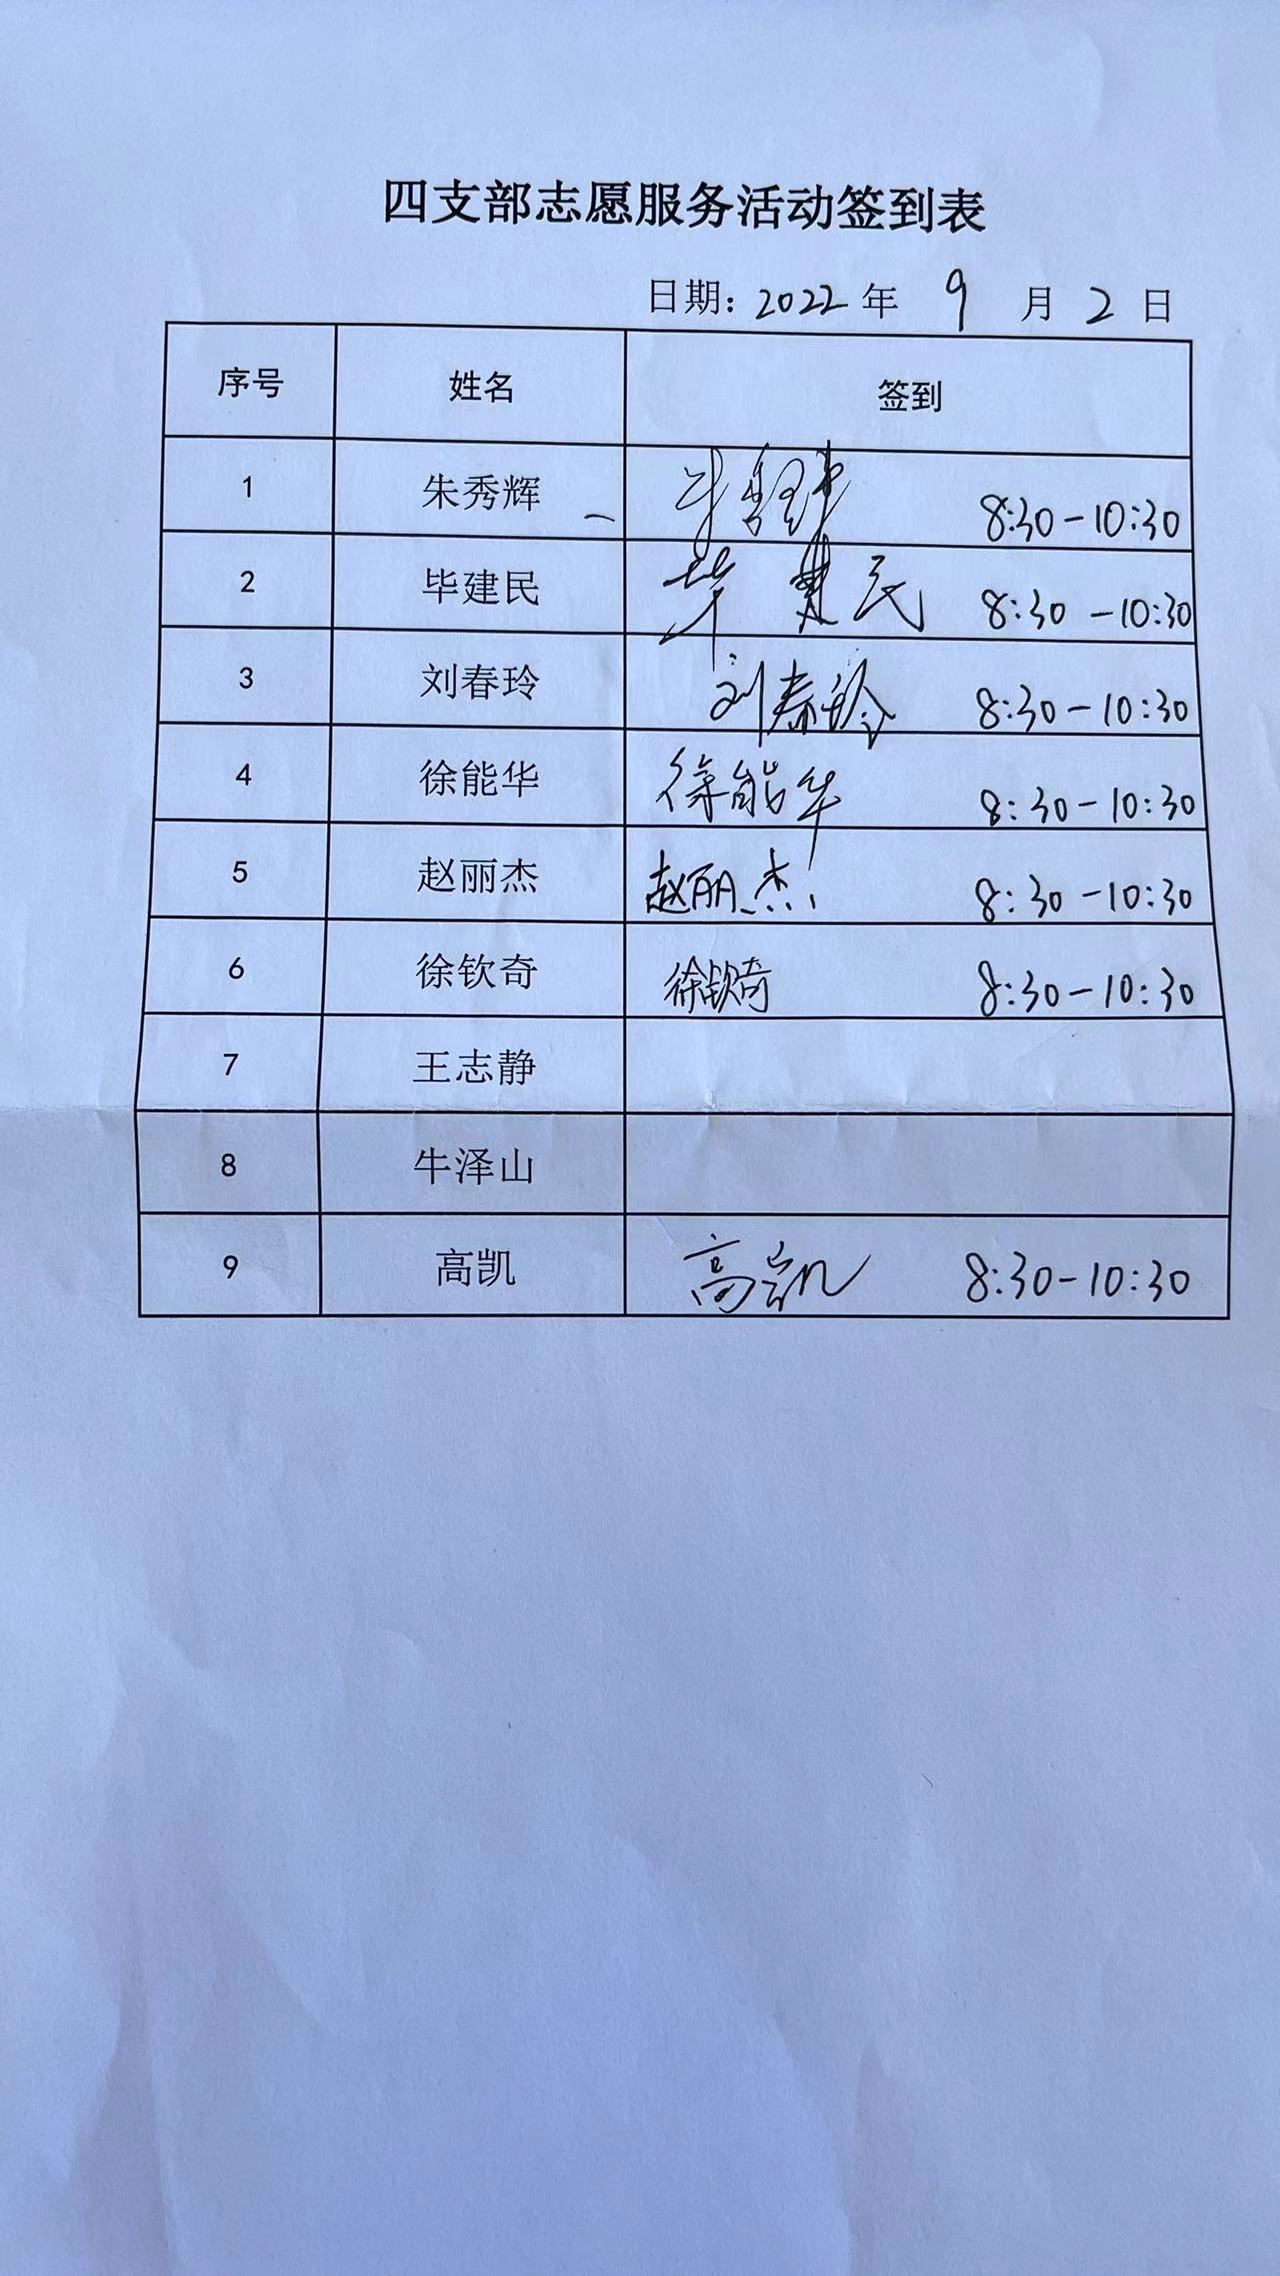 四支部志愿服务活动签到表
日期：2022年 9 月 2 日
序号 姓名 签到
1 朱秀辉 朱秀辉 8:30-10:30
2 毕建民 毕建民 8:30-10:30
3 刘春玲 刘春玲 8:30-10:30
4 徐能华 徐能华 8:30-10:30
5 赵丽杰 赵丽杰 8:30-10:30
6 徐钦奇 徐钦奇 8:30-10:30
7 王志静
8 牛泽山
9 高凯 高凯 8:30-10:30